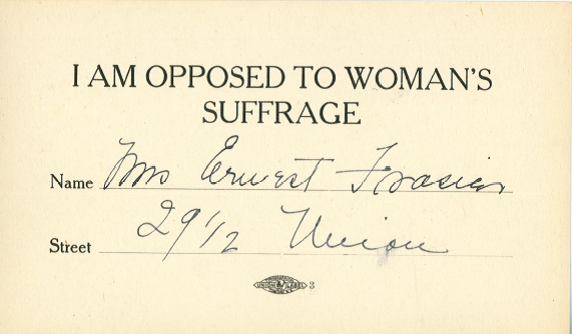 I AM OPPOSED TO WOMAN'S
SUFFRAGE
Name Mrs Ernest Frasier
Street 29 1/2 Union
3